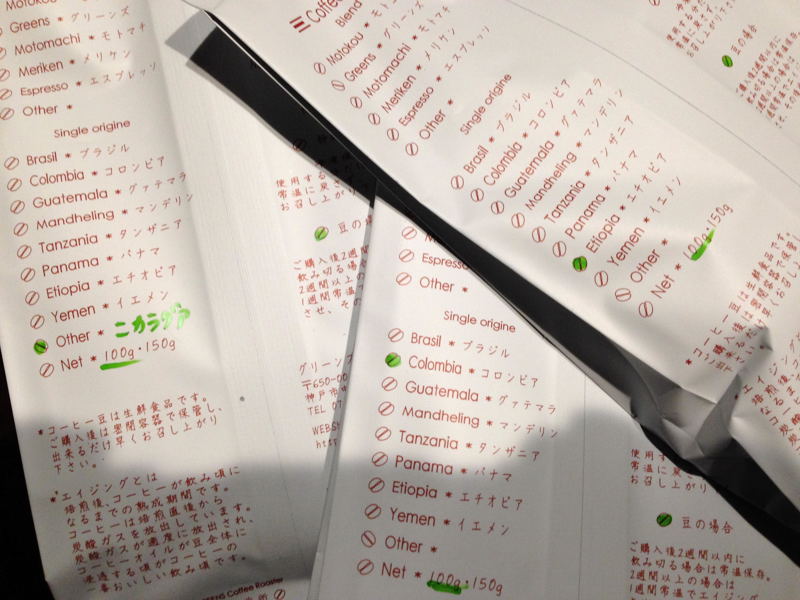 Motokou *
Greens * グリーンズ
Motomachi * モトマチ
Meriken * メリケン
Espresso * エスプレッソ
Other *
Single origine
Brasil * ブラジル
Colombia * コロンビア
Guatemala * グァテマラ
Mandheling * マンデリン
Tanzania * タンザニア
Panama * パナマ
Etiopia * エチオピア
Yemen * イエメン
Other * ニカラグア
Net * 100g・150g
*コーヒー豆は生鮮食品です。
ご購入後は密閉容器で保管し、
出来るだけ早くお召し上がり
下さい。
*エイジングとは
焙煎後、コーヒーが飲み頃に
なるまでの熟成期間です。
コーヒーは焙煎直後から
炭酸ガスを放出しています。
炭酸ガスが適度に放出され、
コーヒーオイルが豆全体に
浸透する頃がコーヒーの
一番おいしい飲み頃です。
Coffee Roaster
使用す
常温に戻
お召し上
豆の
ご購入後2週
飲み切る場
2週間以上
1週間常温
させ、そ
グリーンズ
〒650-00
神戸市
TEL 07
Coffee
Blend
Motokou *
Greens * グリーンズ
Motomachi * モトマチ
Meriken * メリケン
Espresso * エスプレッソ
Other *
Single origine
Brasil * ブラジル
Colombia * コロンビア
Guatemala * グァテマラ
Mandheling * マンデリン
Tanzania * タンザニア
Panama * パナマ
Etiopia * エチオピア
Yemen * イエメン
Other *
Net * 100g・150g
豆の場合
Espresso
Other *
Single origine
Brasil * ブラジル
Colombia * コロンビア
Guatemala * グァテマラ
Mandheling * マンデリン
Tanzania * タンザニア
Panama * パナマ
Etiopia * エチオピア
Yemen * イエメン
Other *
Net * 100g・150g
使用す
常温に戻
お召し上がり
豆の場合
ご購入後2週間以内に
飲み切る場合は常温保存。
2週間以上の場合は
1週間常温でエイジング